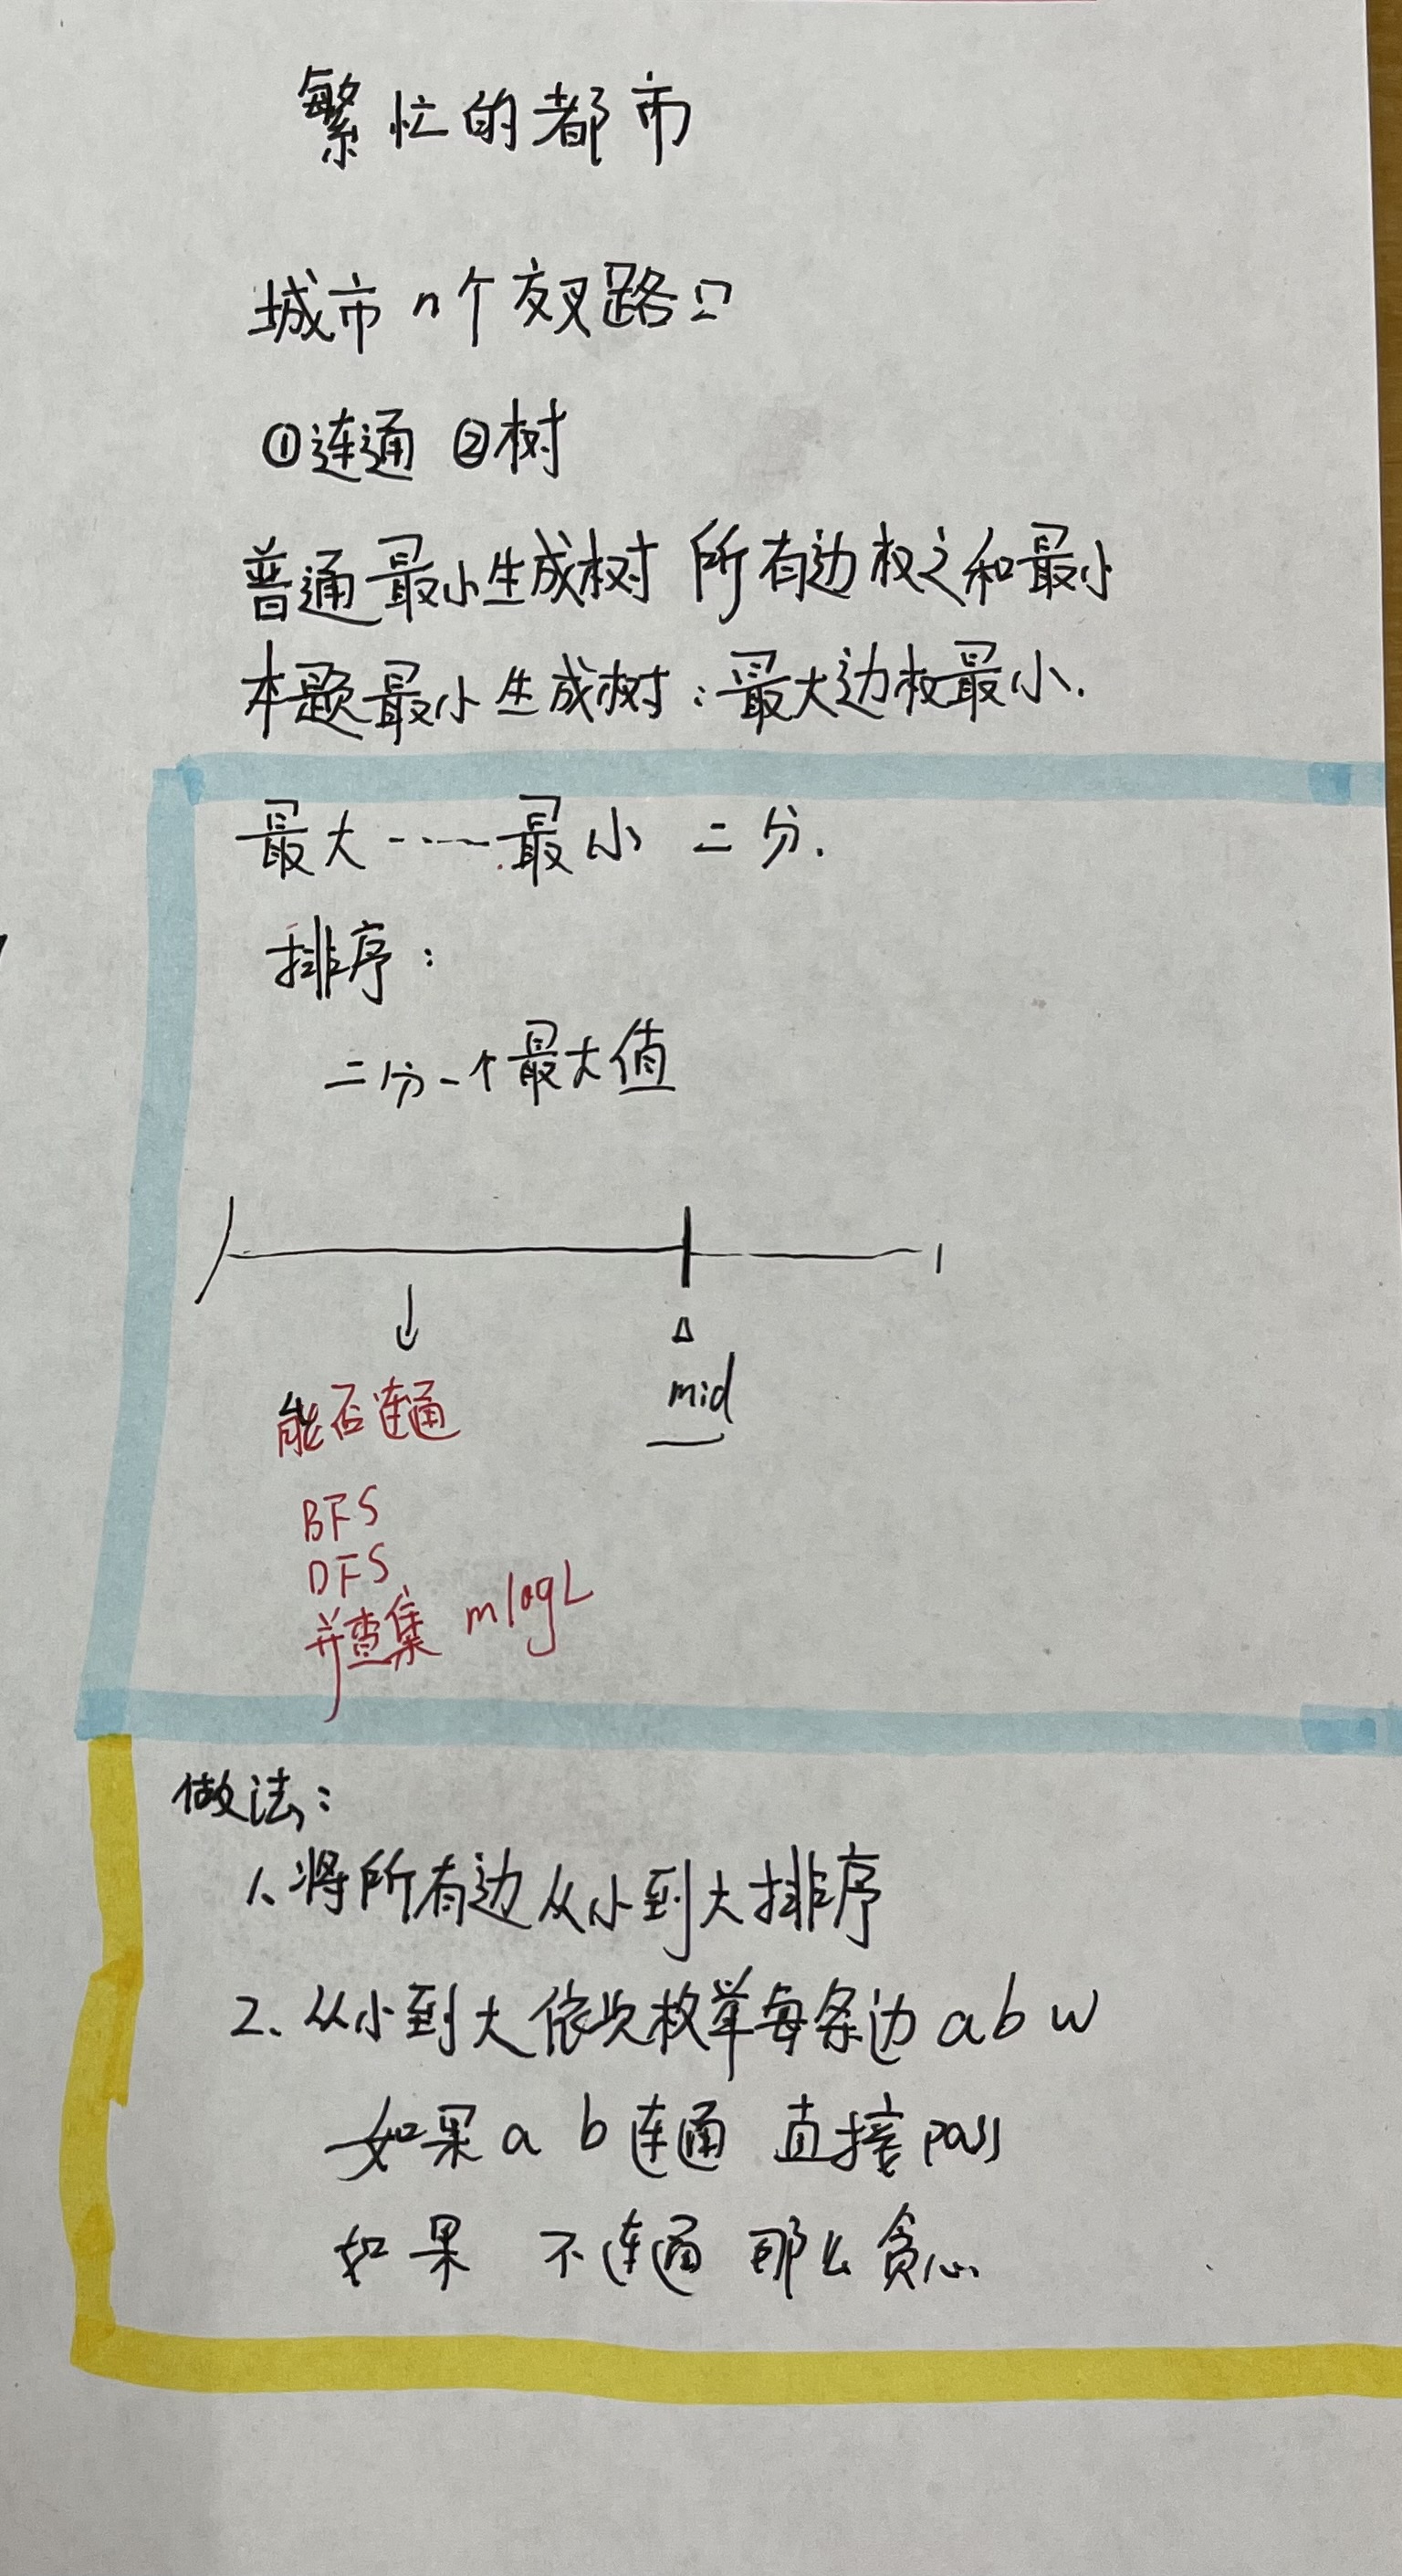 繁忙的都市
城市 n个交叉路口
①连通 ②树
普通最小生成树 所有边权之和最小
本题最小生成树：最大边权最小.
最大……最小 二分.
排序：
二分一个最大值
mid
能否连通
BFS
DFS
并查集 mlogL
做法：
1、将所有边从小到大排序
2、从小到大依次枚举每条边 a b w
如果 a b 连通 直接 pass
如果 不连通 那么贪心